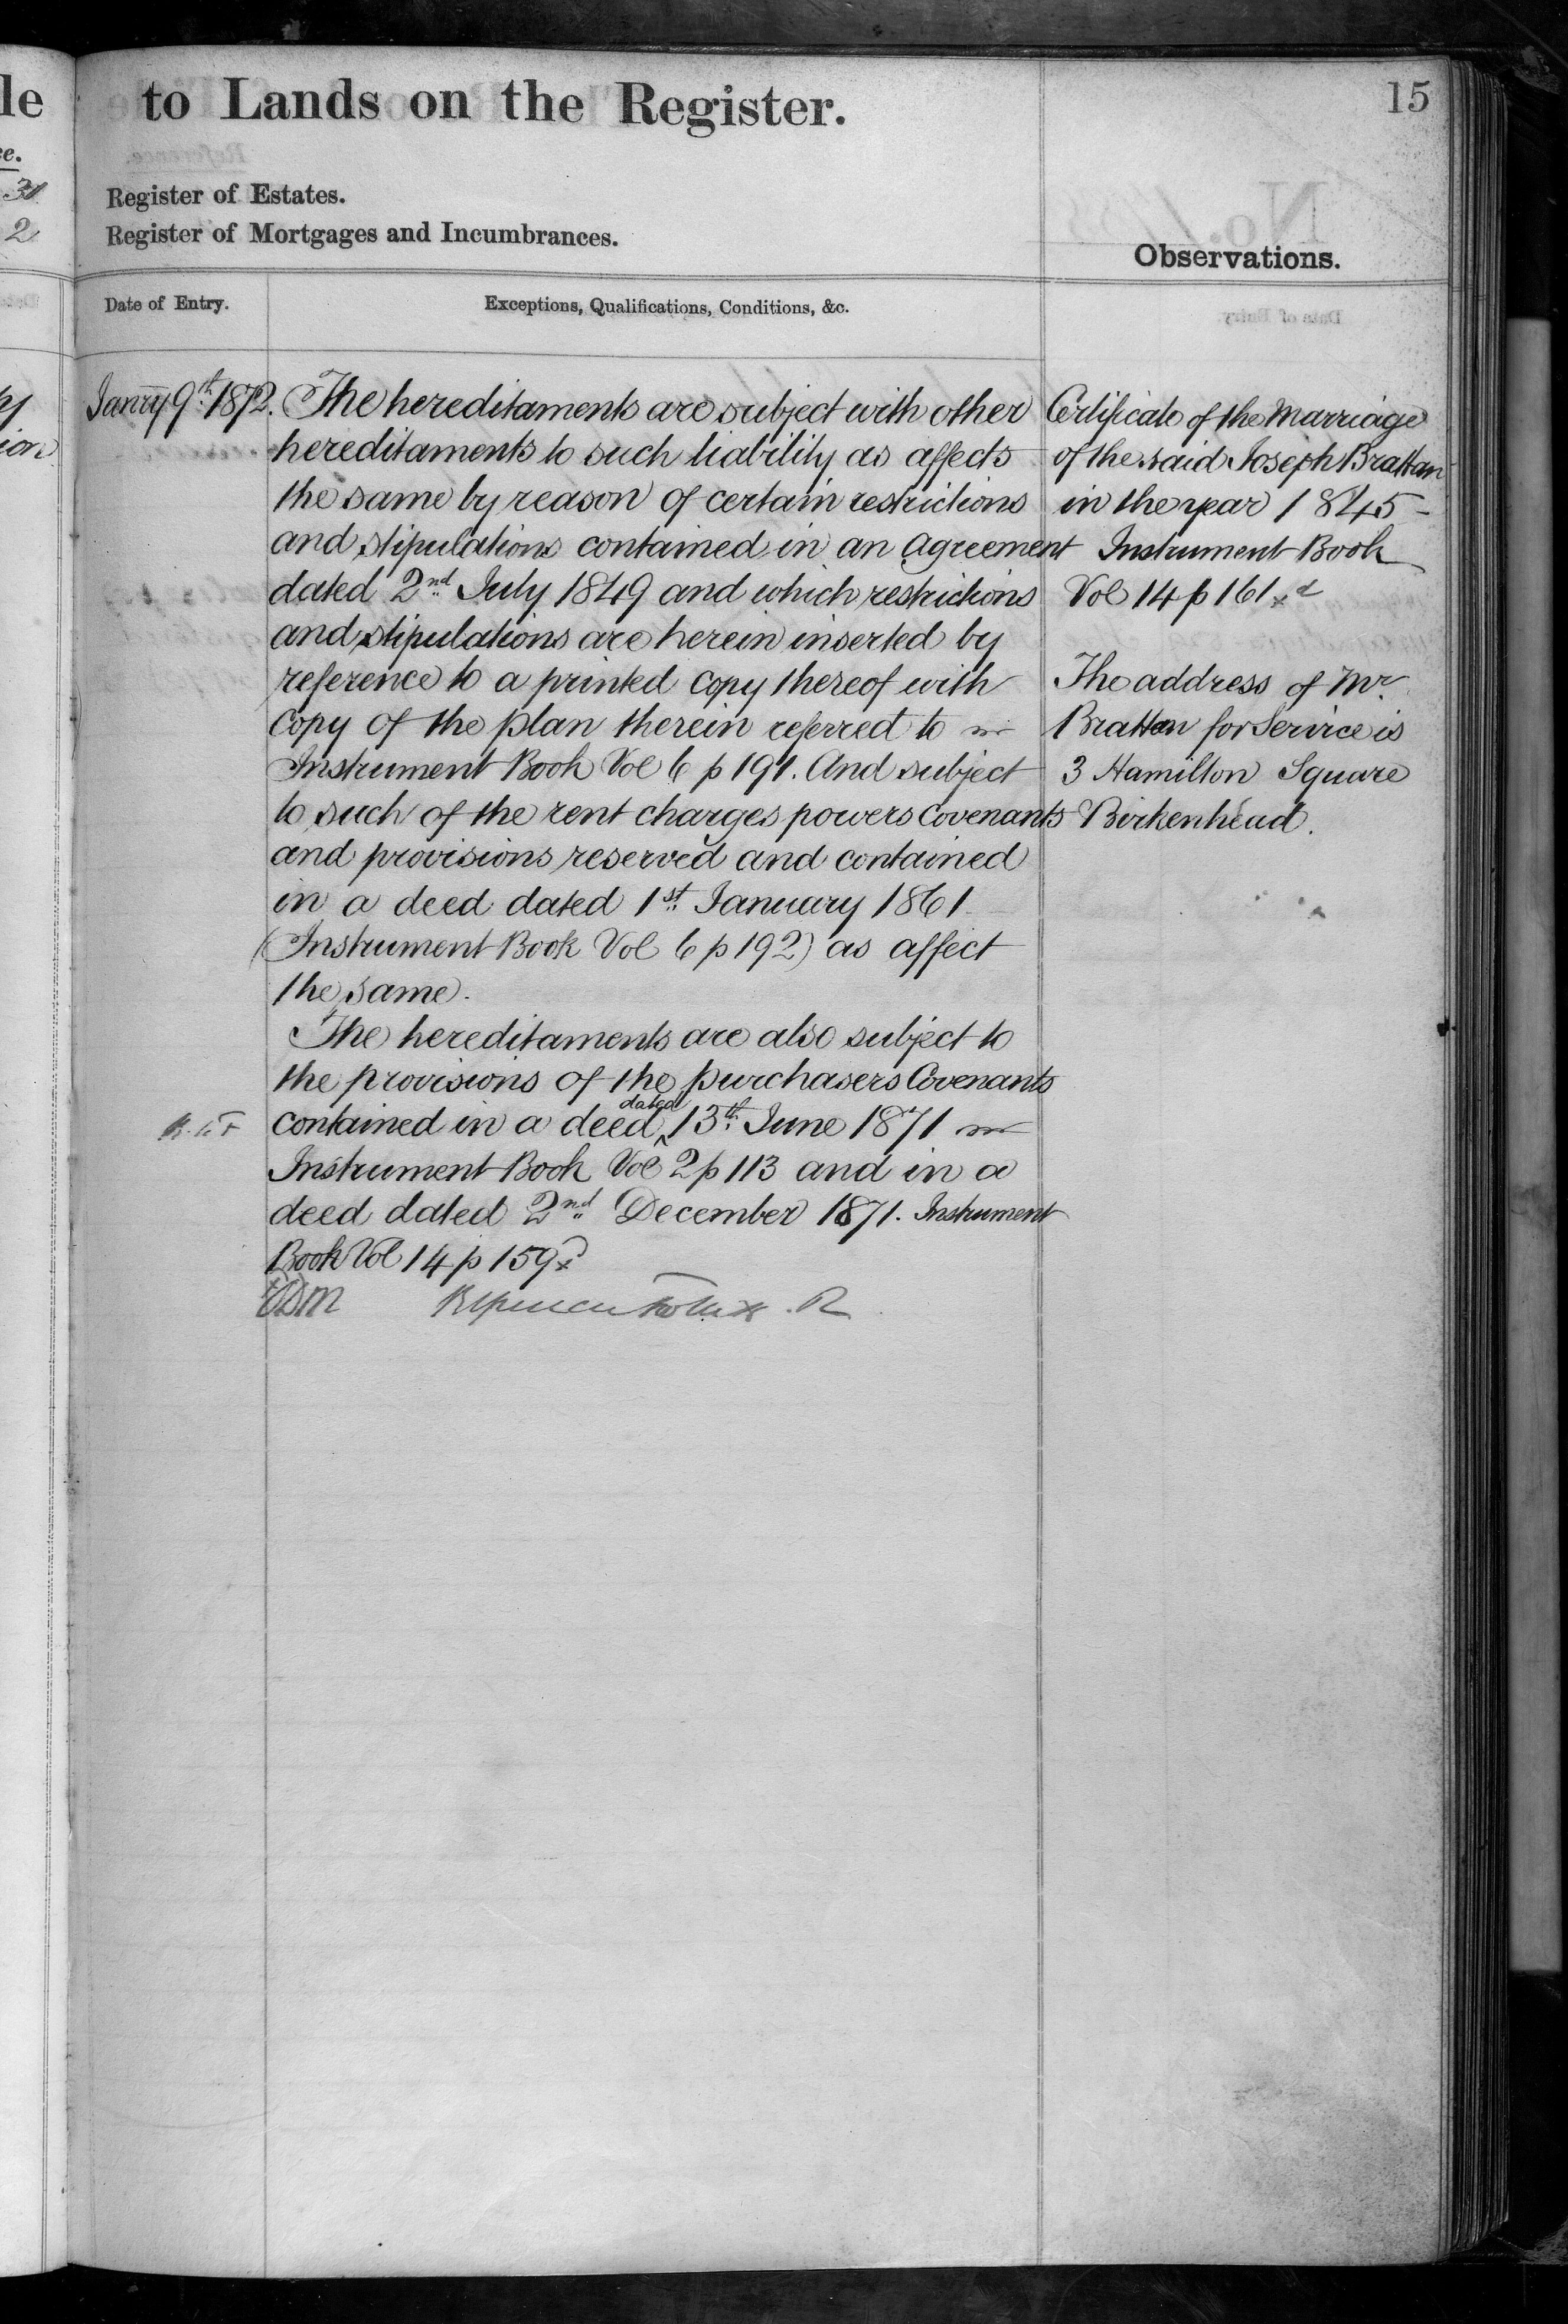 to Lands on the Register.
15
Register of Estates.
Register of Mortgages and Incumbrances.
Observations.
Date of Entry.
Exceptions, Qualifications, Conditions, &c.
Janry 9th 1872.
The hereditaments are subject with other
hereditaments to such liability as affects
the same by reason of certain restrictions
and stipulations contained in an agreement
dated 2nd July 1849 and which restrictions
and stipulations are herein inserted by
reference to a printed copy thereof with
copy of the plan therein referred to in
Instrument Book Vol 6 p 191. And subject
to such of the rent charges powers Covenants
and provisions reserved and contained
in a deed dated 1st January 1861
(Instrument Book Vol 6 p 192) as affect
the same.
The hereditaments are also subject to
the provisions of the purchasers Covenants
contained in a deed dated 13th June 1871 in
Instrument Book Vol 2 p 113 and in a
deed dated 2nd December 1871. Instrument
Book Vol 14 p 159
Certificate of the Marriage
of the said Joseph Bratton
in the year 1845 -
Instrument Book
Vol 14 p 161
The address of Mr.
Bratton for Service is
3 Hamilton Square
Birkenhead.